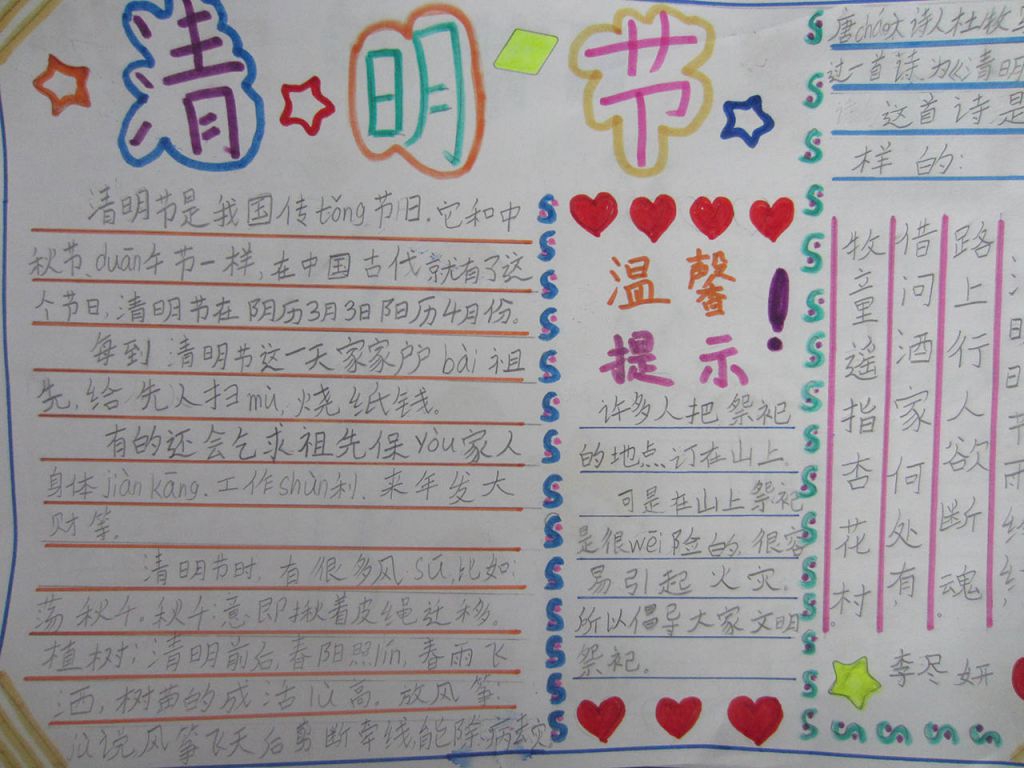 清明节
清明节是我国传tǒng节日.它和中
秋节、duān午节一样,在中国古代就有了这
个节日,清明节在阴历3月3日阳历4月份。
每到清明节这一天家家户户bài祖
先,给先人扫mù,烧纸钱。
有的还会乞求祖先保yòu家人
身体jiàn kāng.工作shùn利、来年发大
财等。
清明节时,有很多风sú,比如:
荡秋千。秋千:意即揪着皮绳迁移。
植树:清明前后,春阳照lín,春雨飞
洒,树苗的成活lǜ高.放风筝:
jù说,风筝飞天后剪断牵线,能除病去灾
温馨
提示!
许多人把祭祀
的地点订在山上。
可是在山上祭祀
是很wēi险的很容
易引起火灾.
所以倡导大家文明
祭祀.
唐cháo大诗人杜牧
过一首诗,为《清明
这首诗是
样的:
路上行人欲断魂。
借问酒家何处有,
牧童遥指杏花村。
李尽妍